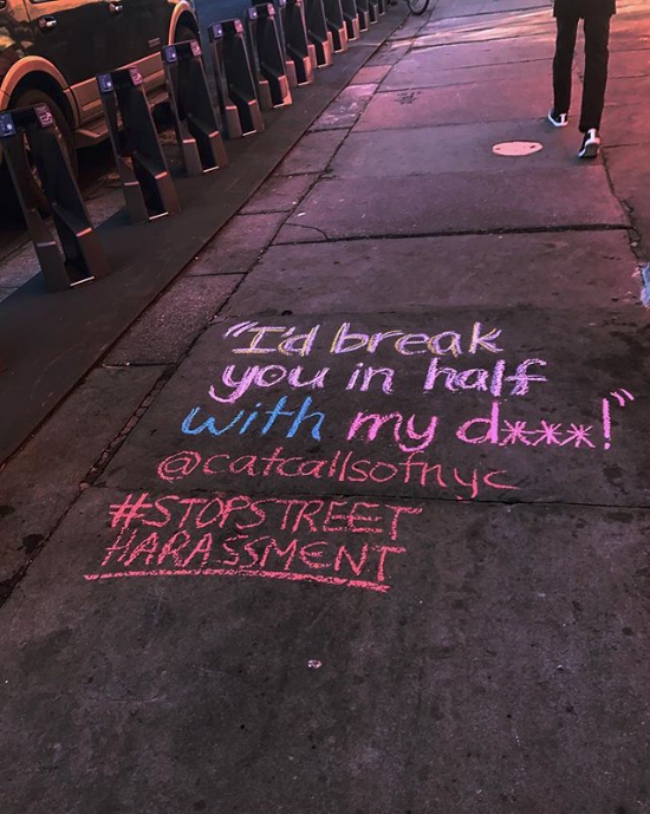 "I'd break
you in half
with my d***!"
@catcallsofnyc
#STOPSTREET
HARASSMENT